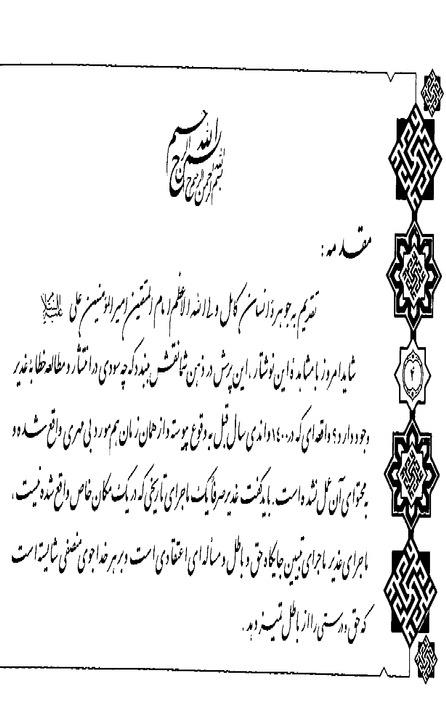 بسم الله الرحمن الرحیم
مقدمه:
تقدیم به جوهرهٔ انسان کامل ولی الله الاعظم امام المتقین امیرالمومنین علی علیه‌السلام
شاید امروز با مشاهدهٔ این نوشتار، این پرسش در ذهن شما نقش ببندد که چه سودی در انتشار و مطالعه خطابهٔ غدیر
وجود دارد؟ واقعه‌ای که در ۱۴۰۰ و اندی سال قبل به وقوع پیوسته و از همان زمان هم مورد بی مهری واقع شده و
به محتوای آن عمل نشده است. باید گفت غدیر صرفا یک ماجرای تاریخی که در یک مکان خاص واقع شده نیست،
ماجرای غدیر ماجرای تبیین جایگاه حق و باطل و مسأله‌ای اعتقادی است و بر هر خداجوی منصفی شایسته است
که حق و درستی را از باطل تمییز دهد.
۴